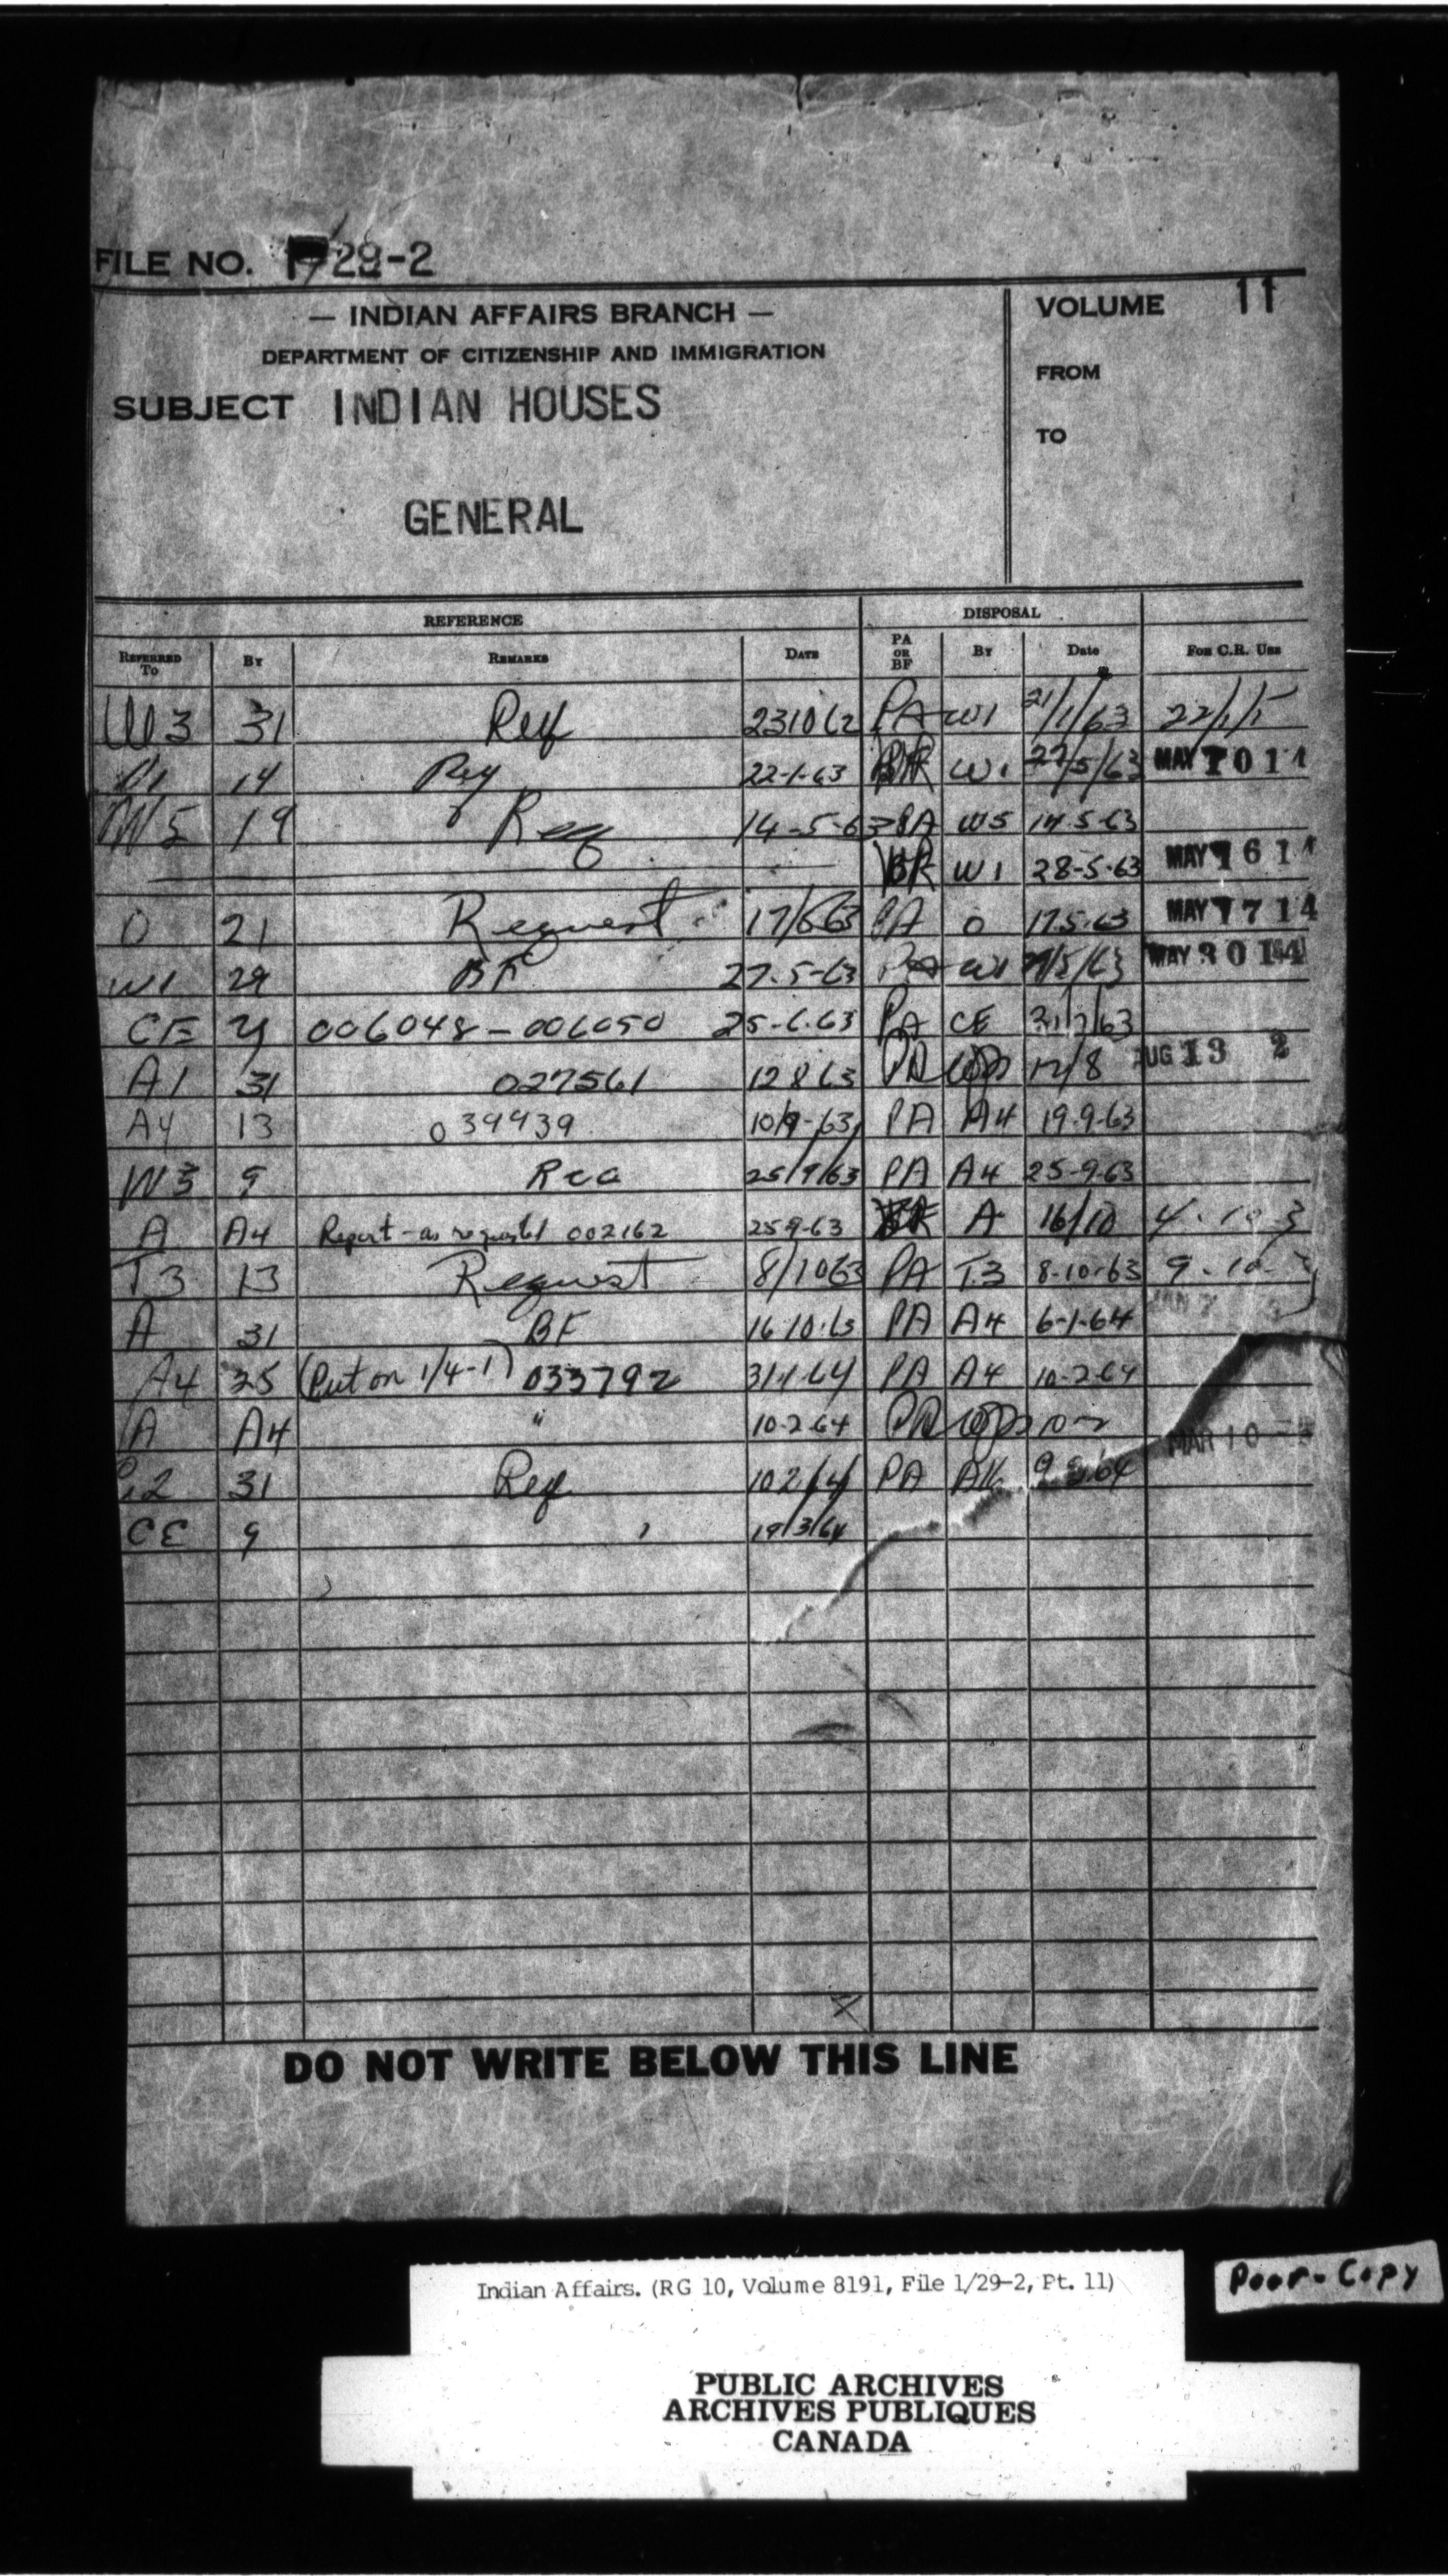 FILE NO. 1/29-2
— INDIAN AFFAIRS BRANCH —
DEPARTMENT OF CITIZENSHIP AND IMMIGRATION
SUBJECT INDIAN HOUSES
GENERAL
VOLUME 11
FROM
TO
REFERENCE DISPOSAL
REFERRED TO BY REMARKS DATE PA OR BF BY Date FOR C.R. USE
W3 31 Req 231062 PA W1 21/1/63 22/1/5
14 Req 22-1-63 W1 27/5/63 MAY
W5 19 Req 14-5-63 PA W5 14 5-63
W1 28-5-63 MAY
O 21 Request 17/5/63 PA O 17.5.63 MAY 17 14
W1 29 BF 27.5-63 PA W1 MAY 30
CE 006048-006050 25-6.63 PA CE 31/7/63
A1 31 027561 12 8 63 PA 12/8 AUG 13 2
A4 13 039939 10/9-63 PA A4 19.9-63
W3 9 Req 25/9/63 PA A4 25-9-63
A A4 Report - as requested 002162 25 9-63 A 16/10 4.10 3
T3 13 Request 8/10 63 PA T3 8-10-63 9-10-3
A 31 BF 16 10.63 PA A4 6-1-64 JAN 7
A4 35 (Put on 1/4-1) 033792 31-1-64 PA A4 10-2-64
A A4 " 10-2-64 PA 10-2 MAR 10
31 Req 10 2/64 PA
CE 9 19/3/64
DO NOT WRITE BELOW THIS LINE
Indian Affairs. (RG 10, Volume 8191, File 1/29-2, Pt. 11)
Poor-Copy
PUBLIC ARCHIVES
ARCHIVES PUBLIQUES
CANADA